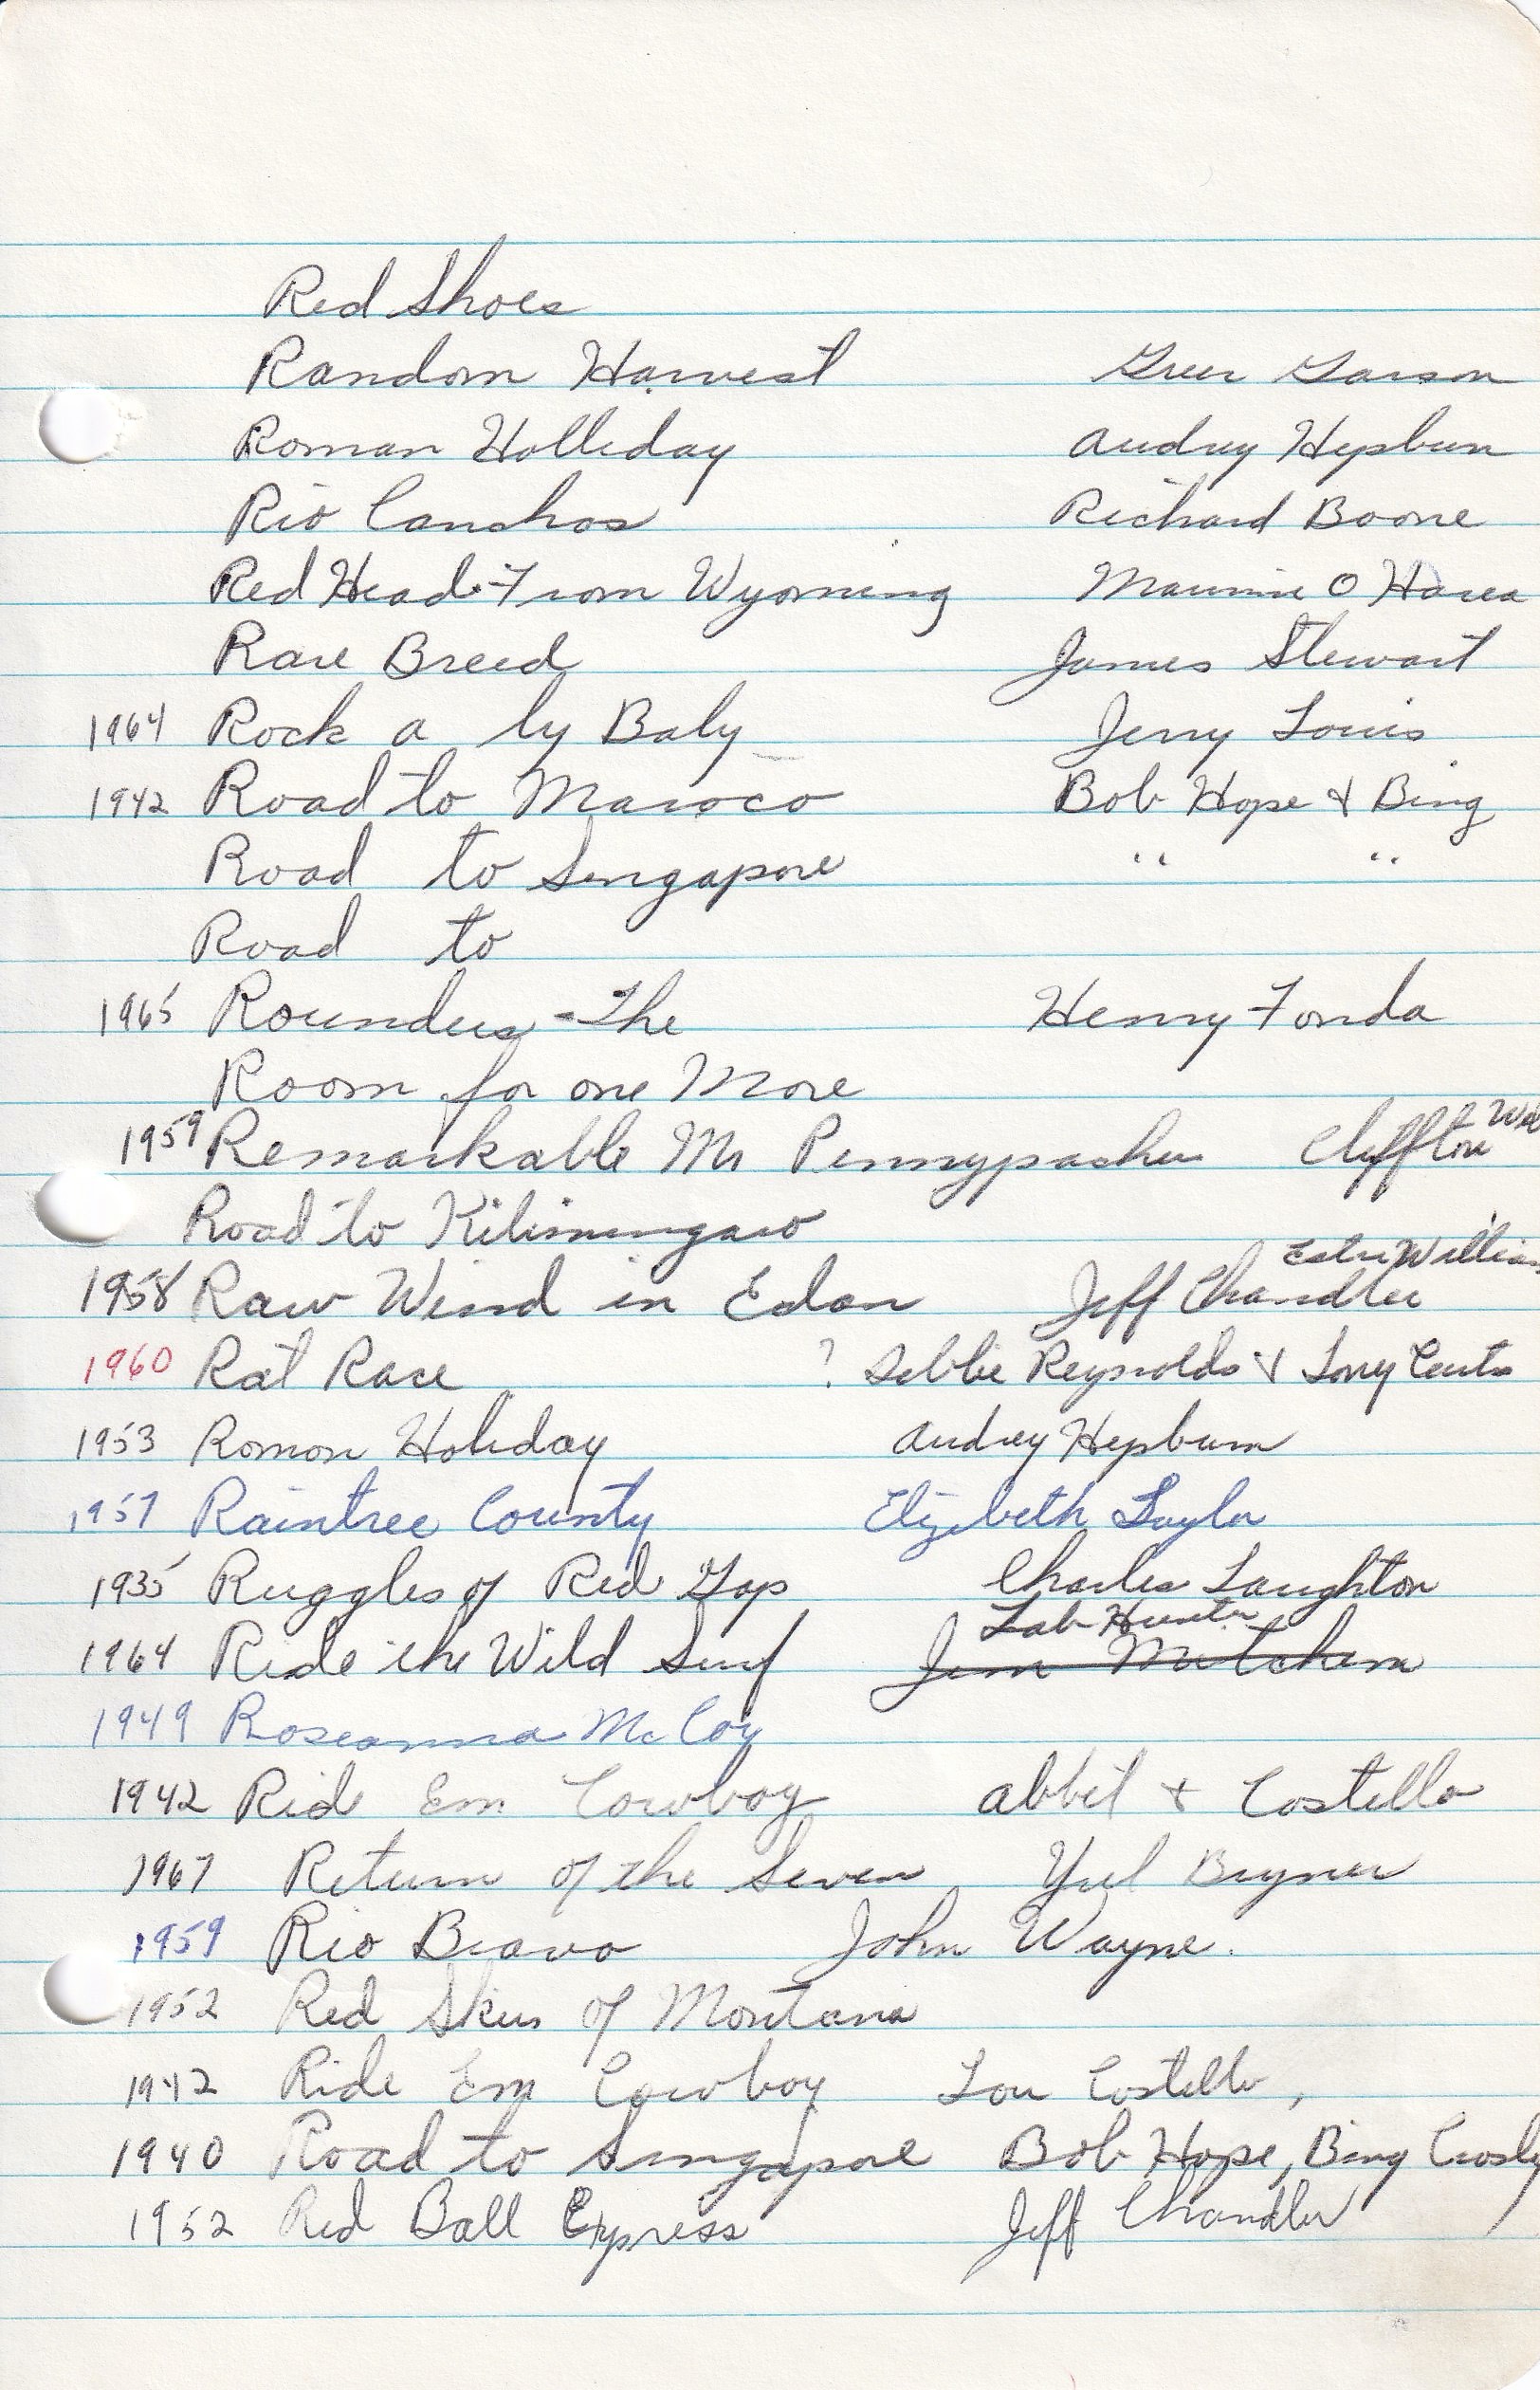 Red Shoes
Random Harvest Greer Garson
Roman Holliday Audrey Hepburn
Rio Conchos Richard Boone
Red Head From Wyoming Maurine O Hara
Rare Breed James Stewart
1964 Rock a by Baby Jerry Louis
1942 Road to Maroco Bob Hope & Bing
Road to Singapore " "
Road to
1965 Rounders - The Henry Fonda
Room for one More
1959 Remarkable Mr Pennypacker Cliffton Web
Road to Kilimingaro
1958 Raw Wind in Edan Jeff Chandler Ester William
1960 Rat Race ? Debbie Reynolds & Tony Curtis
1953 Romon Holiday Audrey Hepburn
1957 Raintree County Elizibeth Taylor
1935 Ruggles of Red Gap Charles Laughton
1964 Ride the Wild Surf Tab Hunter Jim Mitchem
1949 Roseanna McCoy
1942 Rid Em Cowboy Abbit & Costello
1967 Return of the Seven Yul Bryner
1959 Rio Bravo John Wayne.
1952 Red Skies of Montana
1942 Ride Em Cowboy Lou Costello,
1940 Road to Singapore Bob Hope, Bing Crosby
1952 Red Ball Express Jeff Chandler